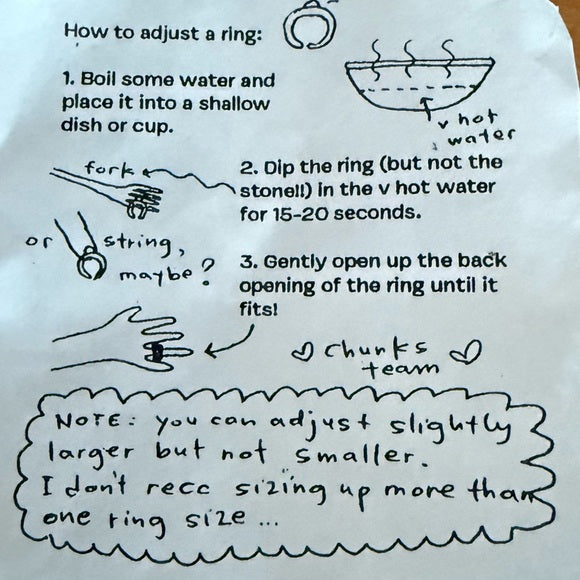 How to adjust a ring:
1. Boil some water and
place it into a shallow
dish or cup.
v hot
water
fork
2. Dip the ring (but not the
stone!!) in the v hot water
for 15-20 seconds.
or string,
maybe?
3. Gently open up the back
opening of the ring until it
fits!
♡ Chunks ♡
team
NOTE: you can adjust slightly
larger but not smaller.
I don't recc sizing up more than
one ring size ...